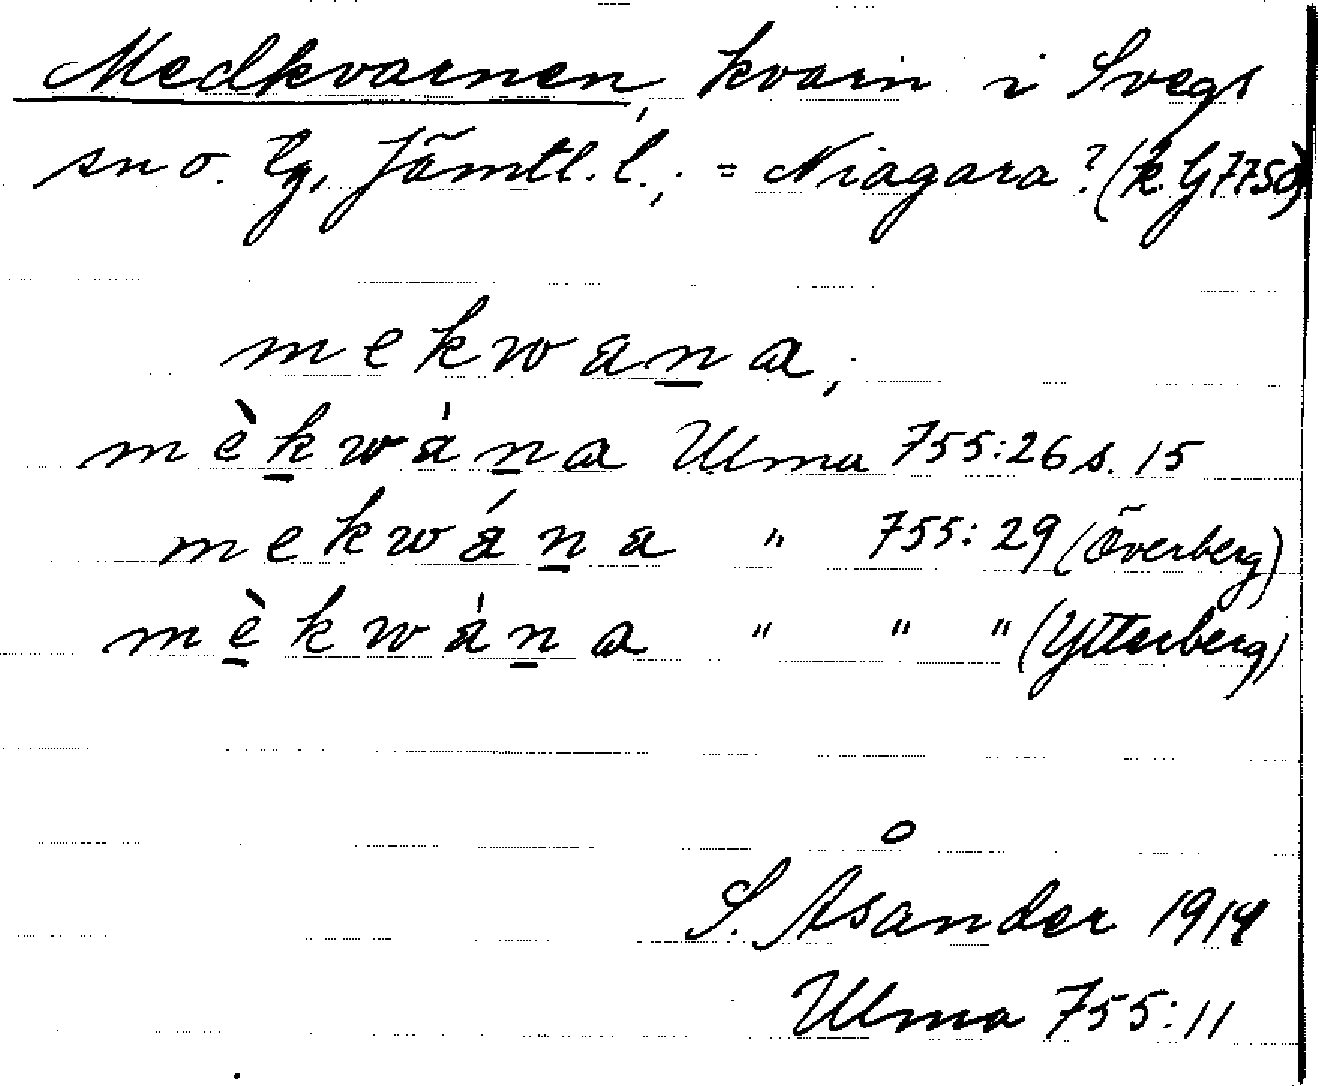 Medkvarnen, kvarn i Svegs
sn o. tg, Jämtl. l.; = Niagara? (k. G 7750)
mekwana,
mèkwána Ulma 755:26 s. 15
mekwána " 755:29 (Överberg)
mèkwána " " " (Ytterberg)
S. Åsander 1914
Ulma 755:11